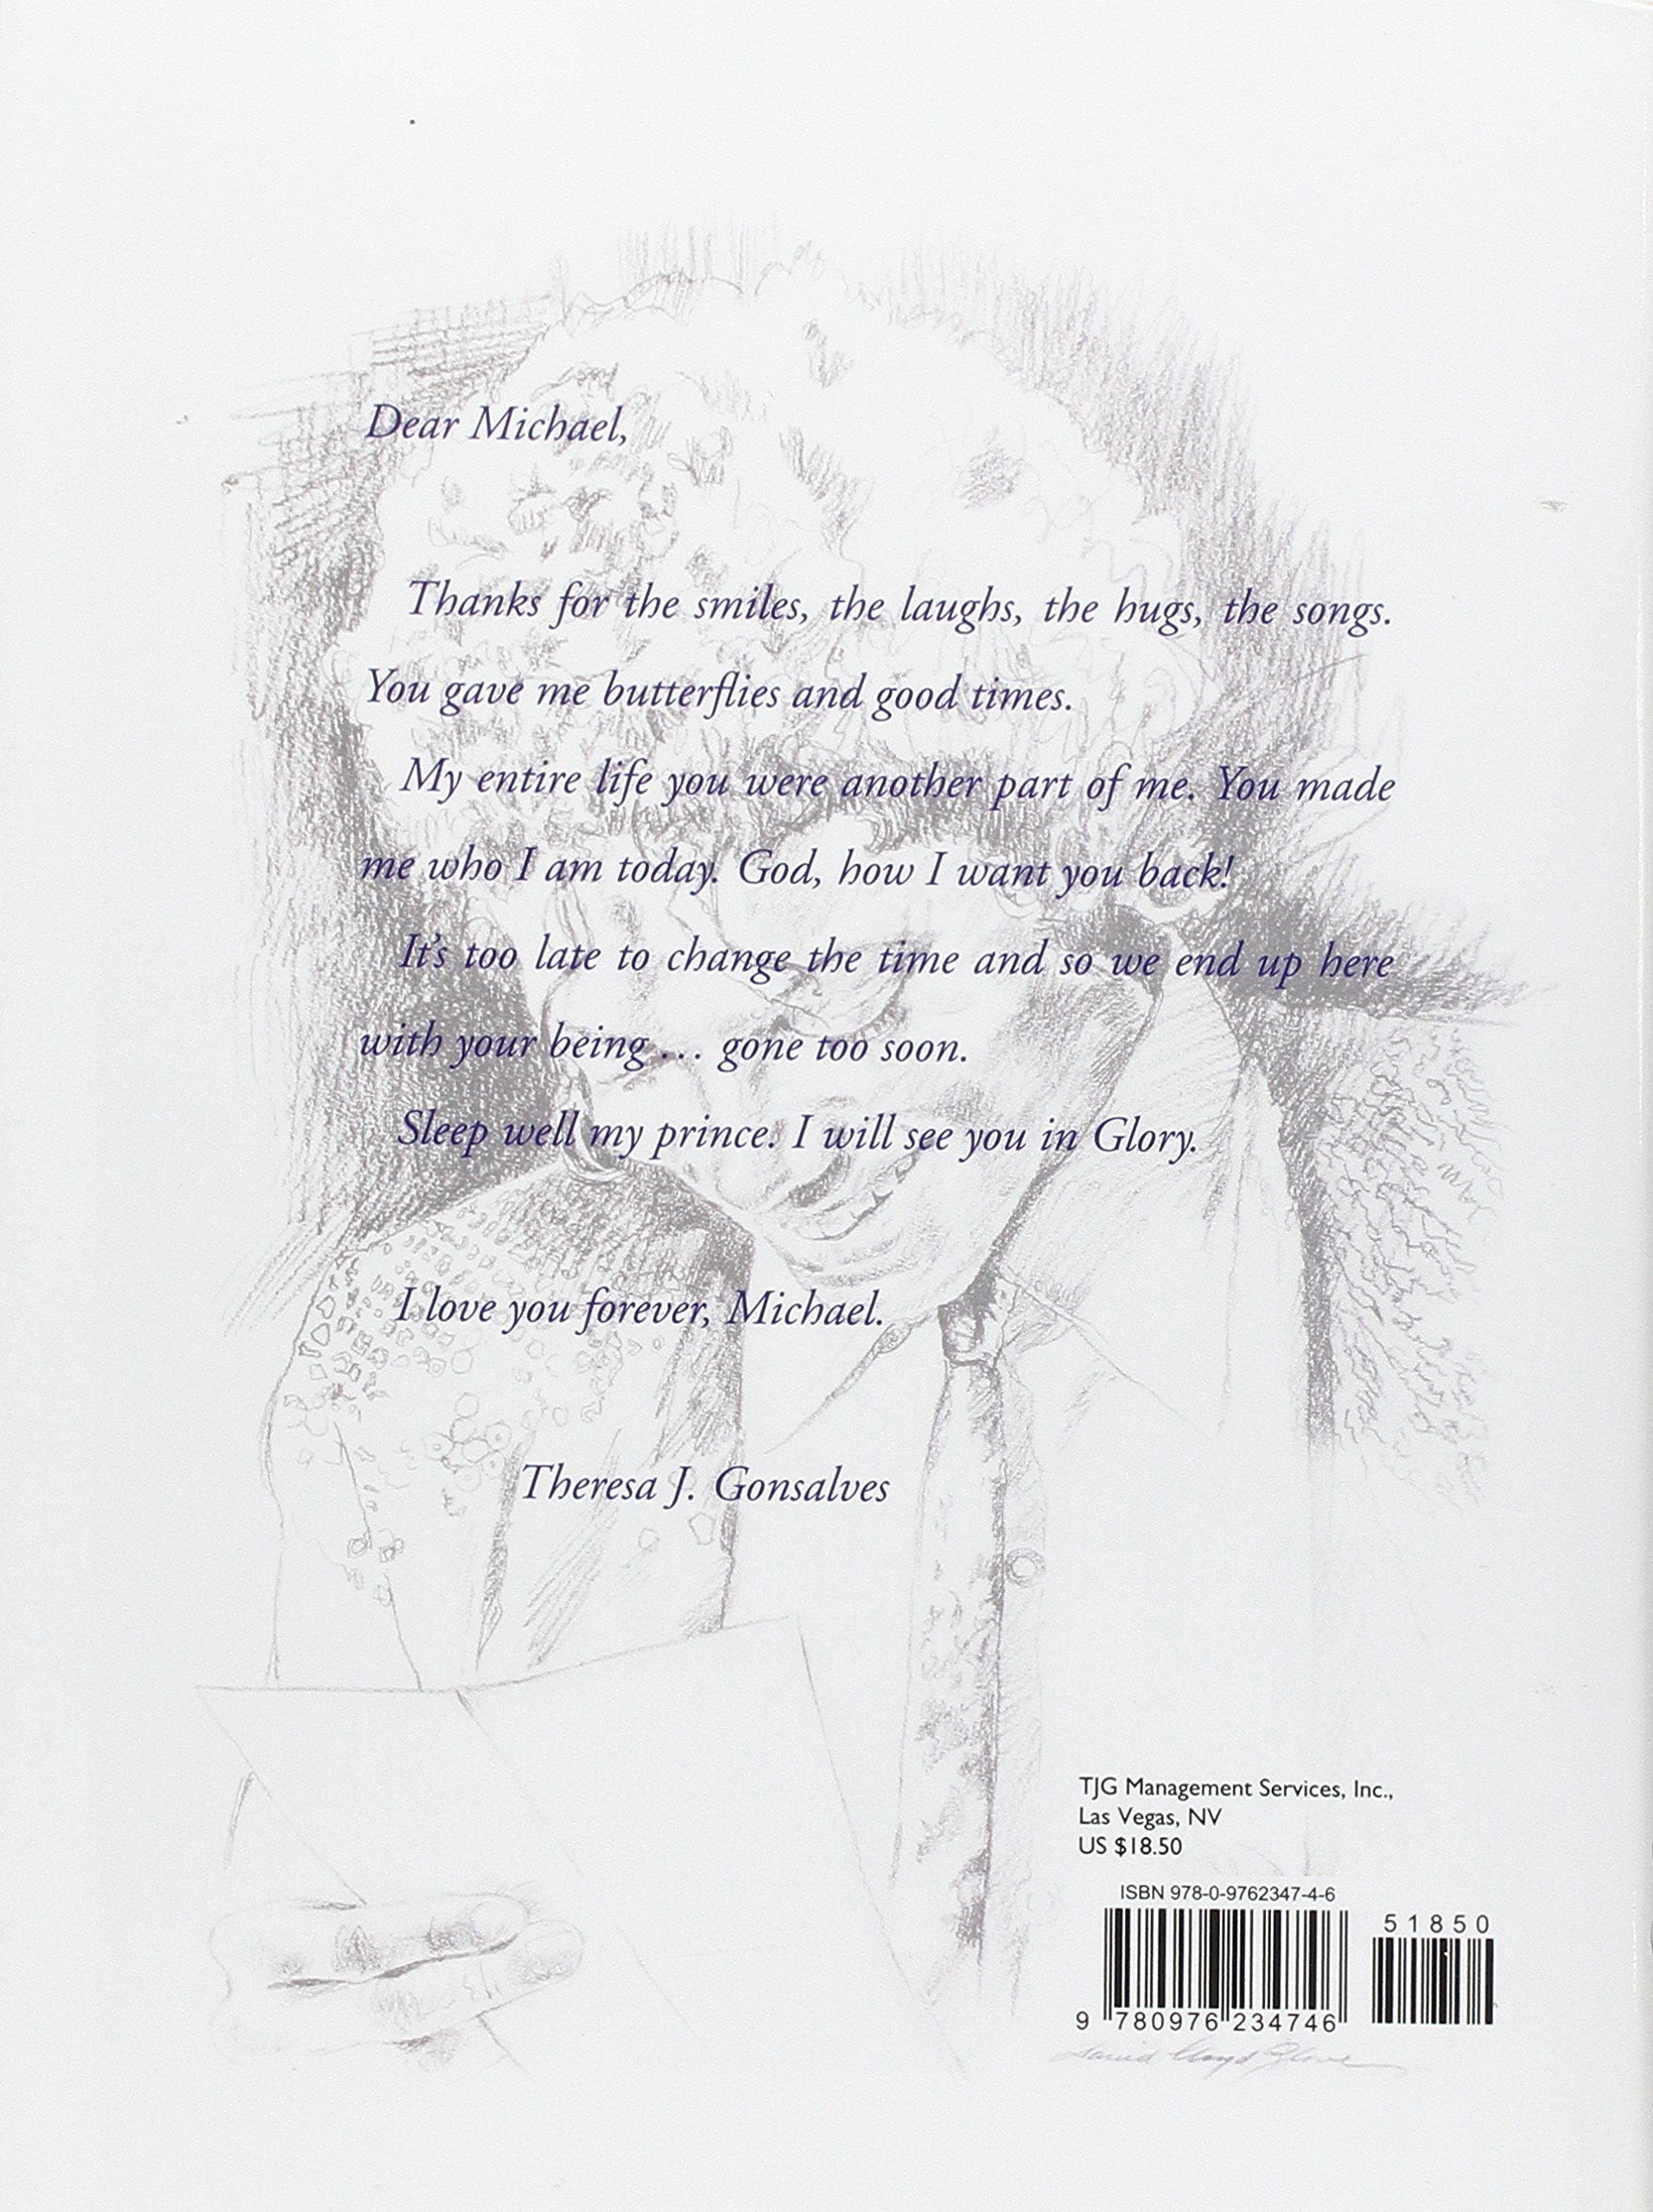 Dear Michael,
Thanks for the smiles, the laughs, the hugs, the songs.
You gave me butterflies and good times.
My entire life you were another part of me. You made
me who I am today. God, how I want you back!
It's too late to change the time and so we end up here
with your being ... gone too soon.
Sleep well my prince. I will see you in Glory.
I love you forever, Michael.
Theresa J. Gonsalves
TJG Management Services, Inc.,
Las Vegas, NV
US $18.50
ISBN 978-0-9762347-4-6
51850
9 780976 234746